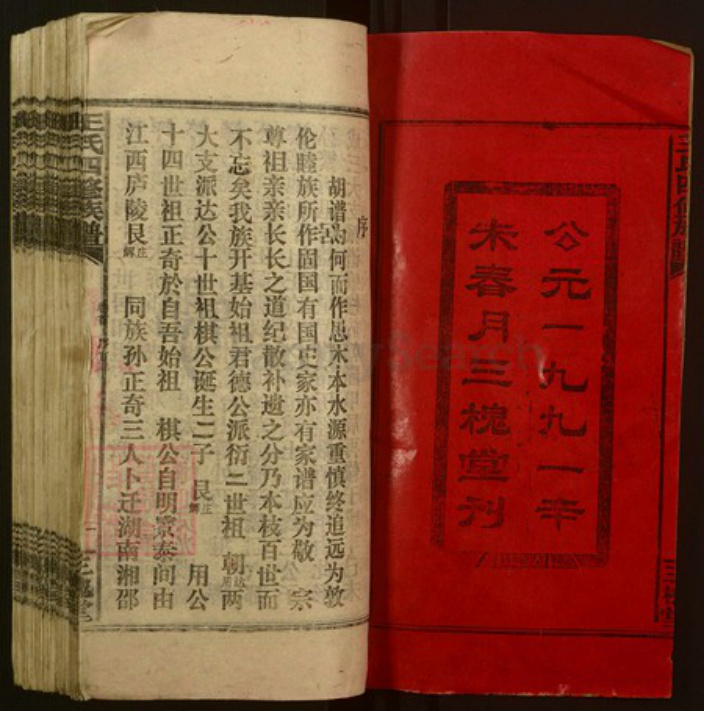 公元一九九一辛
未春月三槐堂刊
王氏四修族譜
三槐堂
序
胡谱为何而作思木本水源重慎终追远为敦
伦睦族所作固国有国史家亦有家谱应为敬 宗
尊祖亲亲长长之道纪散补遗之分乃本枝百世而
不忘矣我族开基始祖君德公派衍二世祖 朝达用两
大支派达公十世祖棋公诞生二子 艮庄解 用公
十四世祖正奇於自吾始祖 棋公自明景泰间由
江西庐陵艮庄解 同族孙正奇三人卜迁湖南湘邵
王氏四修族譜
一
三槐堂